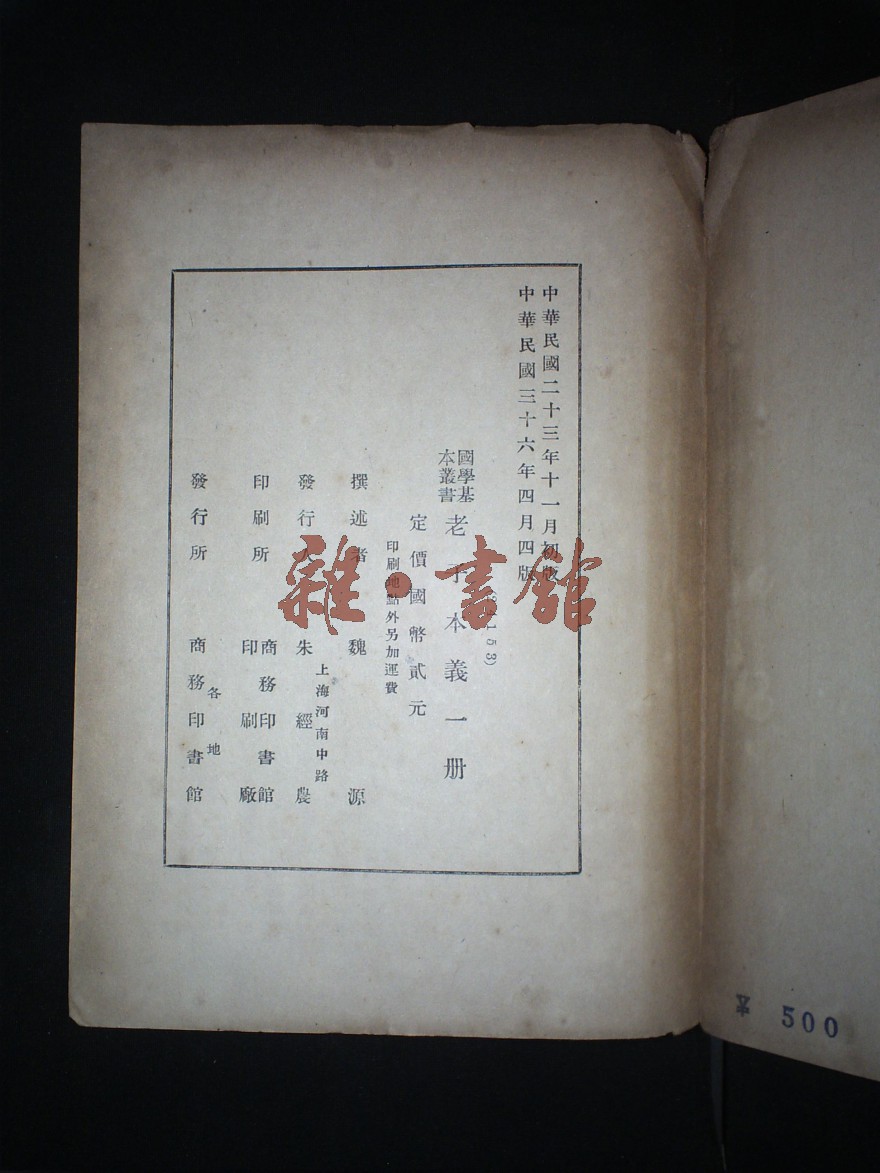 中華民國二十三年十一月初版
中華民國三十六年四月四版
53)
國學基
本叢書
老子本義一册
定價國幣貳元
印刷地點外另加運費
撰述者 魏源
上海河南中路
發行人 朱經農
印刷所 商務印書館
印刷廠
各地
發行所 商務印書館
雜·書館
500